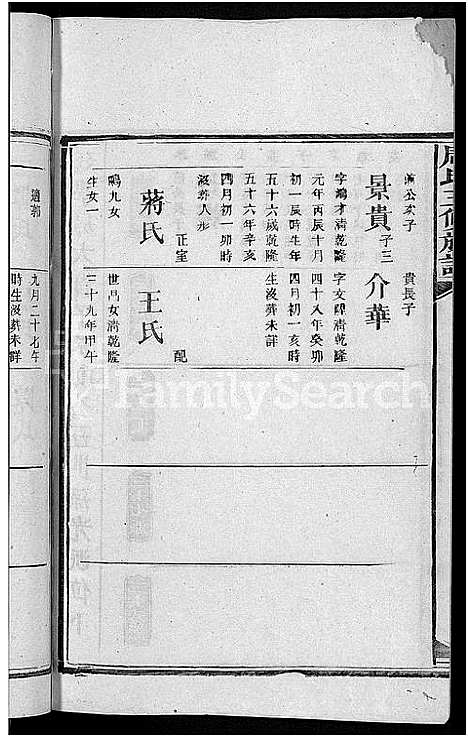 周氏三修族譜
次子
景貴 子三
字鴻才清乾隆
元年丙辰十月
初一辰時生年
五十六年辛亥
五十六歲乾隆
四月初一卯時
沒葬人形
蔣氏 正室
鵬九女
生女一
適郭
貴長子
介華
字文碑清乾隆
四十八年癸卯
四月初一亥時
生沒葬未詳
王氏 配
世昌女清乾隆
三十九年甲午
九月二十七午
時生沒葬未詳
FamilySearch